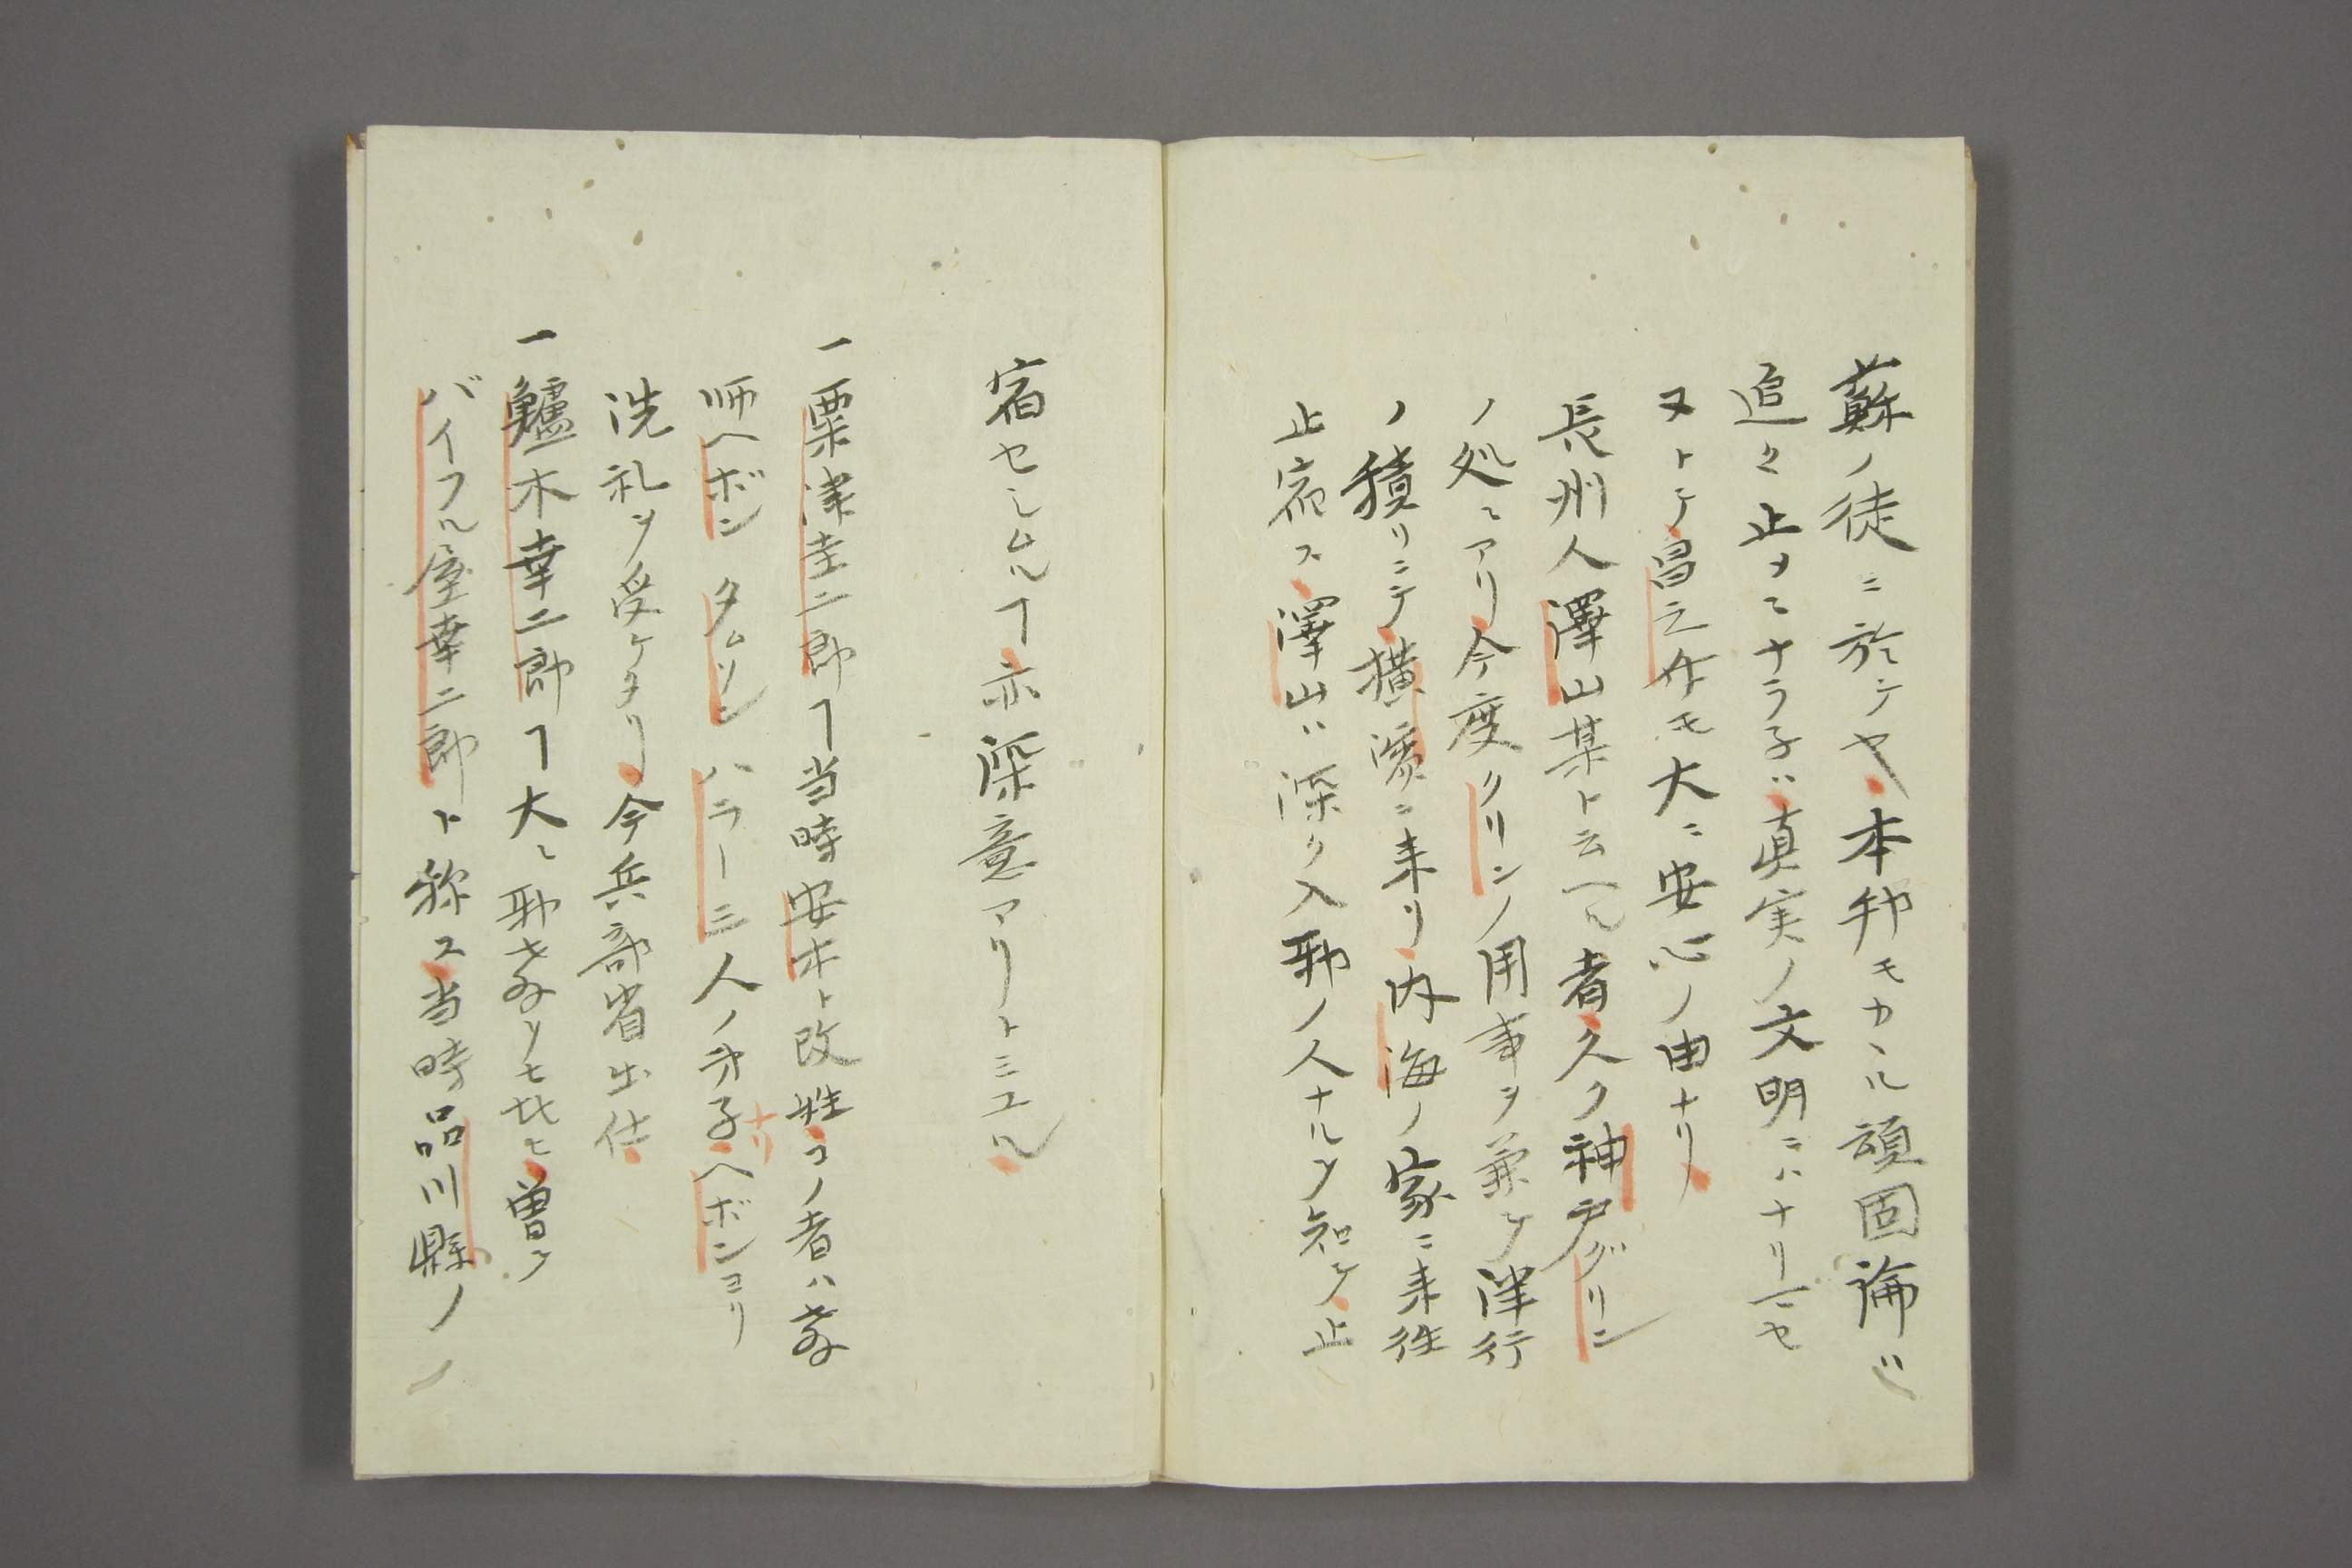 蘇ノ徒ニ於テヤ本邦モカヽル頑固論ハ
追々止メ子ナラ子ハ真実ノ文明ニハナリ
ヌトテ昌之介モ大ニ安心ノ由ナリ
長州人澤山某ト云ヘル者久ク神戸グリン
ノ処ニアリ今度クリンノ用事ヲ兼子洋行
ノ積リニテ横濱ニ来リ内海ノ家ニ来往
止宿ス澤山ハ深ク入耶ノ人ナルヲ知テ止
宿セシムルヿ亦深意アリトミエル
一粟津圭二郎ヿ当時安木ト改姓コノ者ハ教
師ヘボンタムソンバラー三人ノ弟子ナリヘボンヨリ
洗礼ヲ受ケタリ今兵部省出仕
一鱸木幸二郎ヿ大ニ耶教ソ曽テ
バイフル屋幸二郎ト称ス当時品川縣ノ